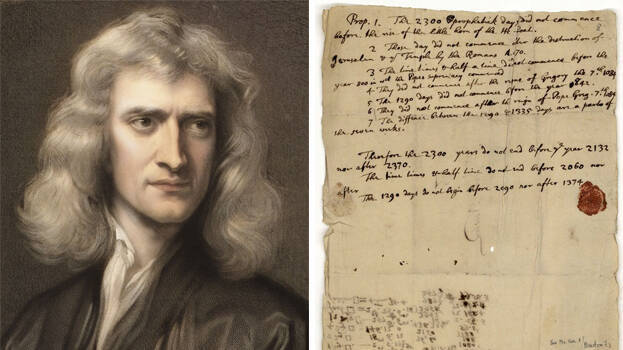 Prop. 1. The 2300 prophetick days did not commence
before the rise of the little horn of the He Goat.
2 Those day did not commence after the destruction of
Jerusalem & ye Temple by the Romans A. 70.
3 The time times & half a time did not commence before the
year 800 in wch the Popes supremacy commenced
4 They did not commence after the reigne of Gregory the 7th. 1084
5 The 1290 days did not commence before the year 842.
6 They did not commence after the reigne of Pope Greg. 7th. 1084
7 The difference between the 1290 & 1335 days are a parts of
the seven weeks.
Therefore the 2300 years do not end before ye year 2132
nor after 2370.
The time times & half time do not end before 2060 nor
after
The 1290 days do not begin before 2090 nor after 1374